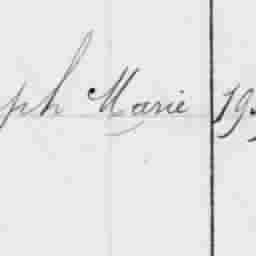 ph Marie 19